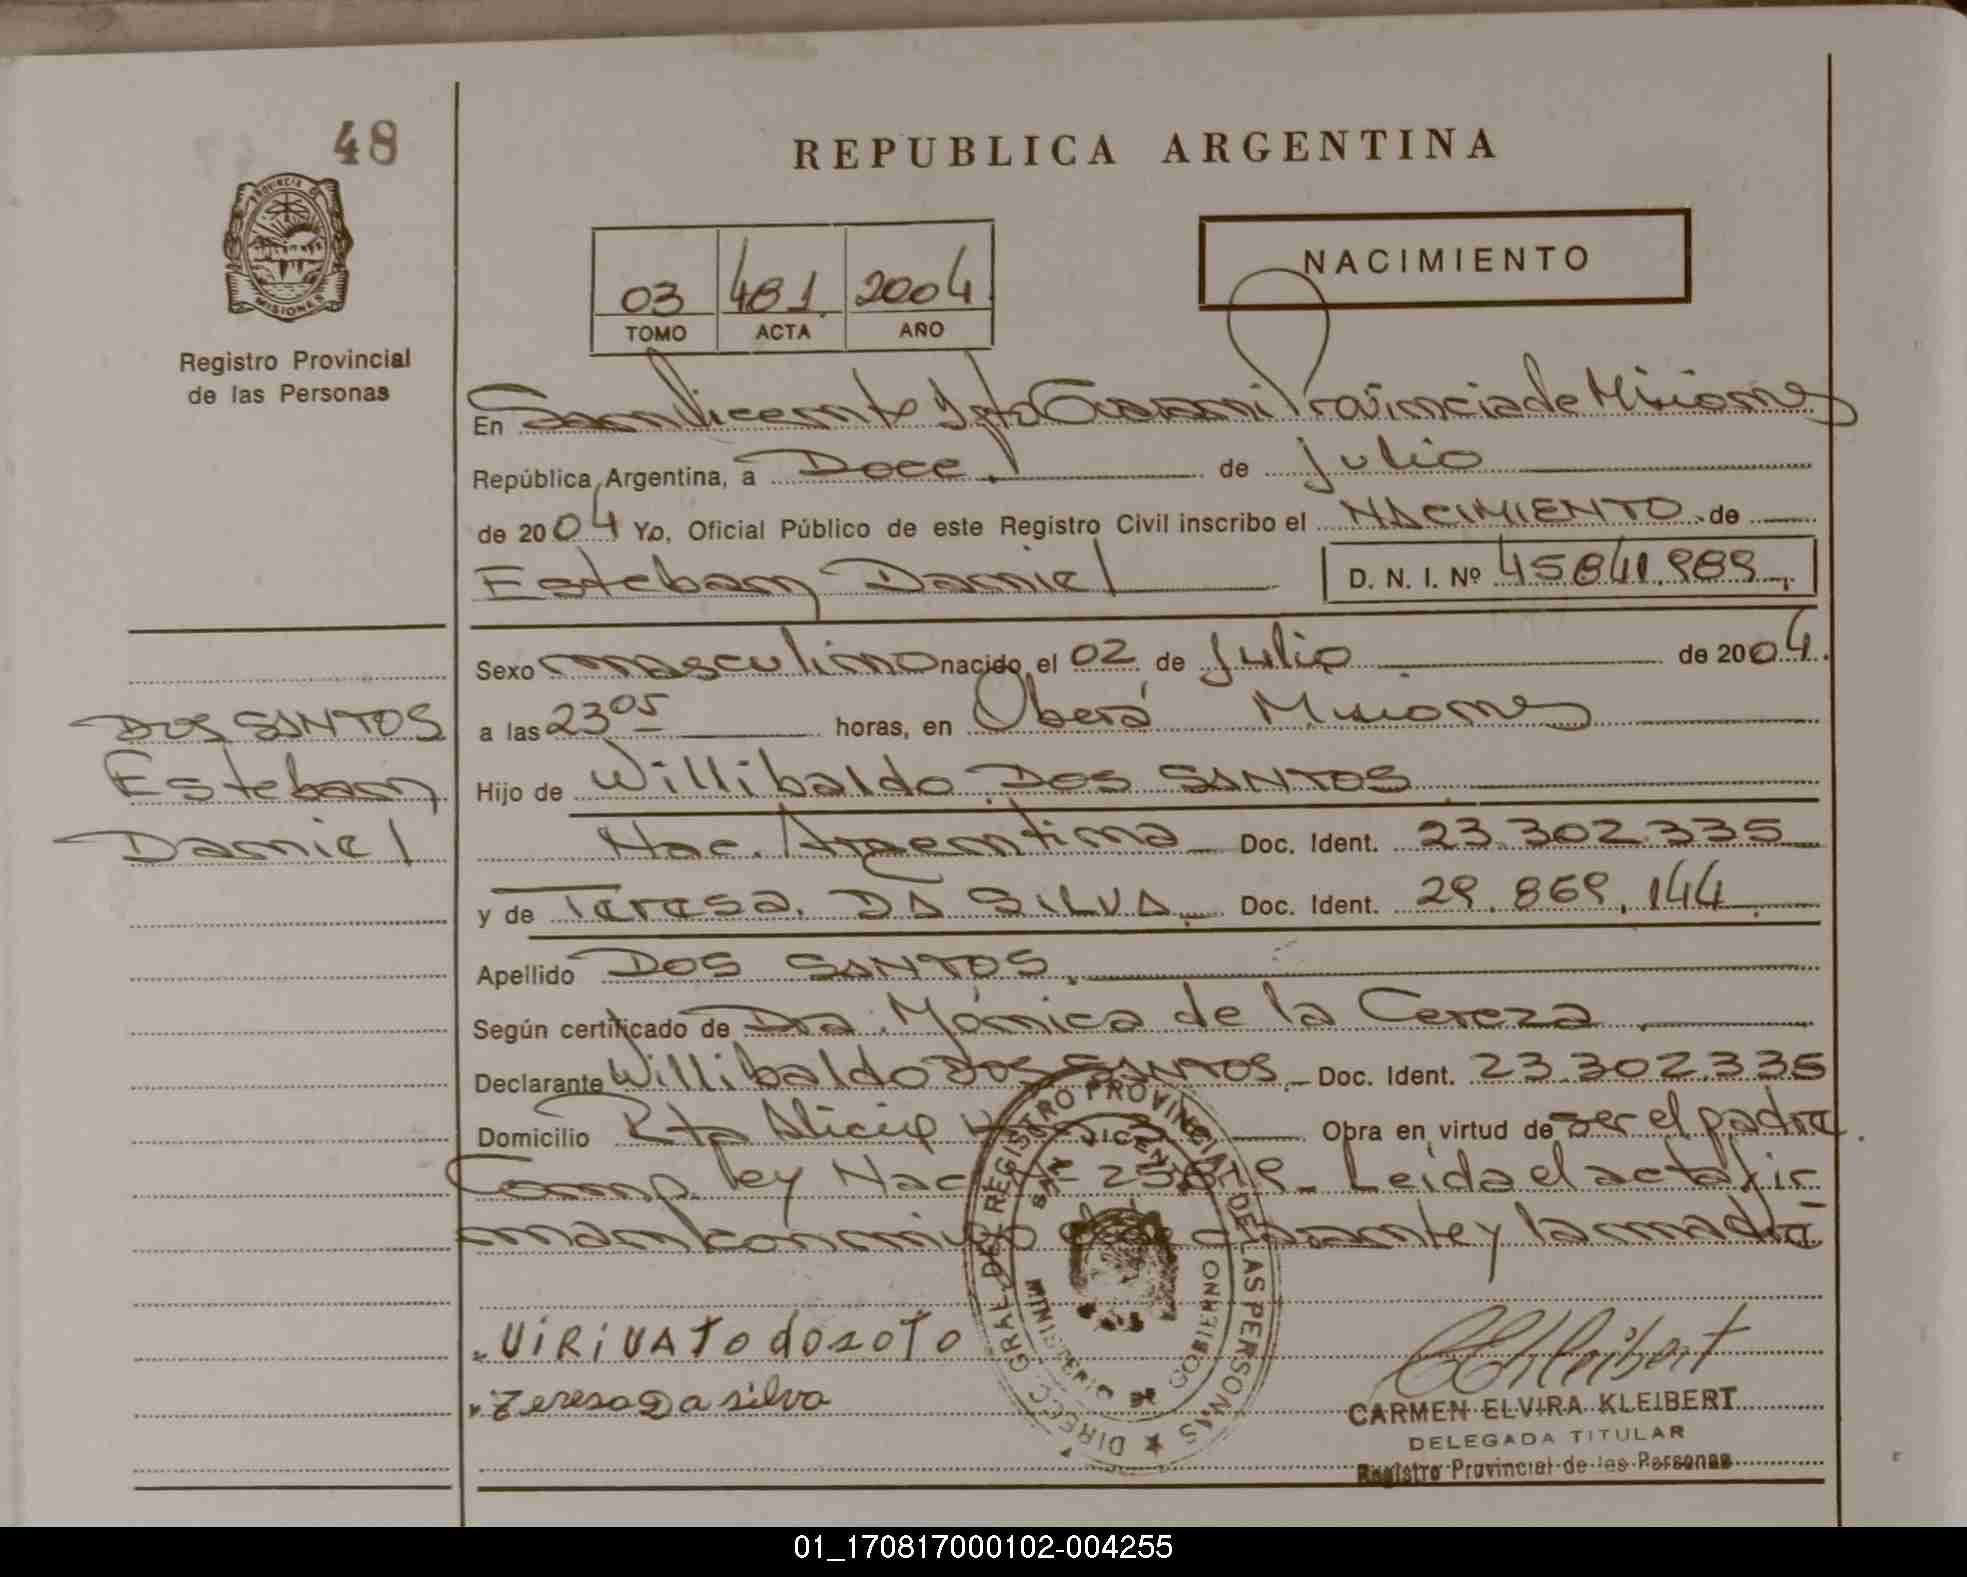 48
REPUBLICA ARGENTINA
PROVINCIA DE
MISIONES
Registro Provincial
de las Personas
NACIMIENTO
03 481 2004
TOMO ACTA AÑO
En San Vicente Dpto Guarani Provincia de Misiones
República Argentina, a Doce de Julio
de 2004 Yo, Oficial Público de este Registro Civil inscribo el NACIMIENTO de
Esteban Daniel D. N. I. Nº 45.841.989
Sexo masculino nacido el 02 de Julio de 2004.
a las 23 05 horas, en Oberá Misiones
DOS SANTOS
Esteban
Daniel
Hijo de Willibaldo DOS SANTOS
Nac. Argentina Doc. Ident. 23.302.335
y de Teresa DA SILVA Doc. Ident. 29.869.144
Apellido DOS SANTOS
Según certificado de Dra. Mónica de la Cereza
Declarante Willibaldo DOS SANTOS Doc. Ident. 23.302.335
Domicilio Pto Alicia Obra en virtud de ser el padre.
Comp. ley Nac Leida el acta fir
man conmigo declarante y la madre
DIRECC. GRAL. DEL REGISTRO PROVINCIAL DE LAS PERSONAS
SAN VICENTE
MINISTERIO DE GOBIERNO
VIRIVATO dosoto
Teresa Da silva
CARMEN ELVIRA KLEIBERT
DELEGADA TITULAR
Registro Provincial de las Personas
01_170817000102-004255